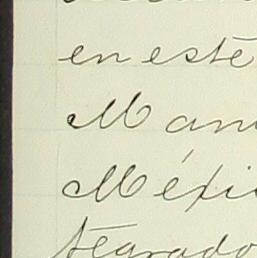 en este
Man
Méxi
tegrado